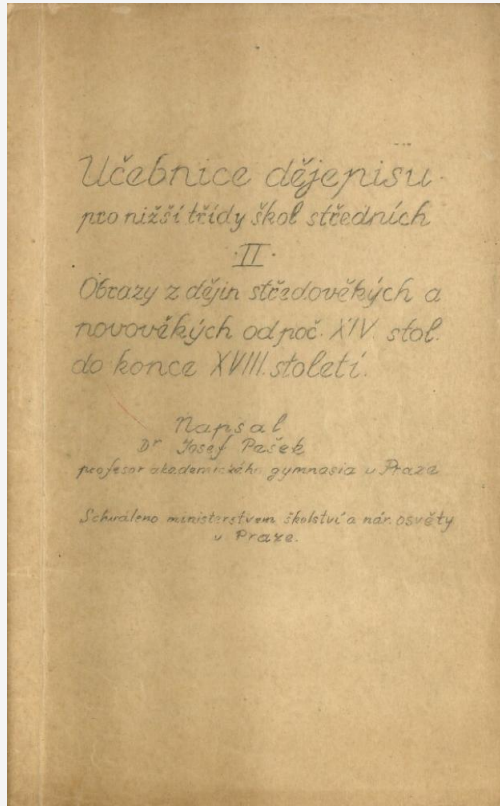 Učebnice dějepisu
pro nižší třídy škol středních
·II·
Obrazy z dějin středověkých a
novověkých od poč. XIV. stol.
do konce XVIII. století.
Napsal
Dr Josef Pešek
profesor akademického gymnasia v Praze
Schváleno ministerstvem školství a nár. osvěty
v Praze.